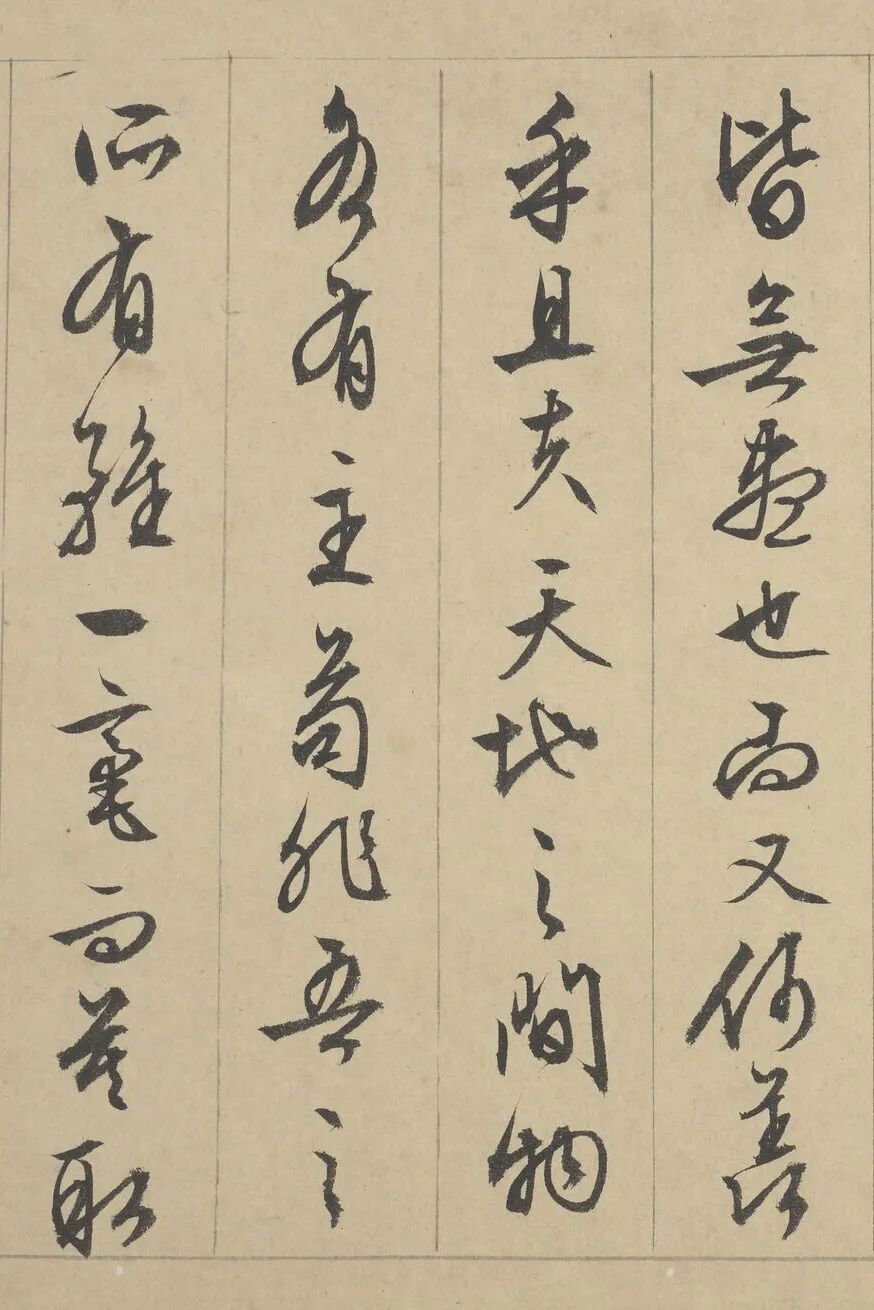 皆無盡也而又何羨
乎且夫天地之間物
各有主茍非吾之
所有雖一毫而莫取